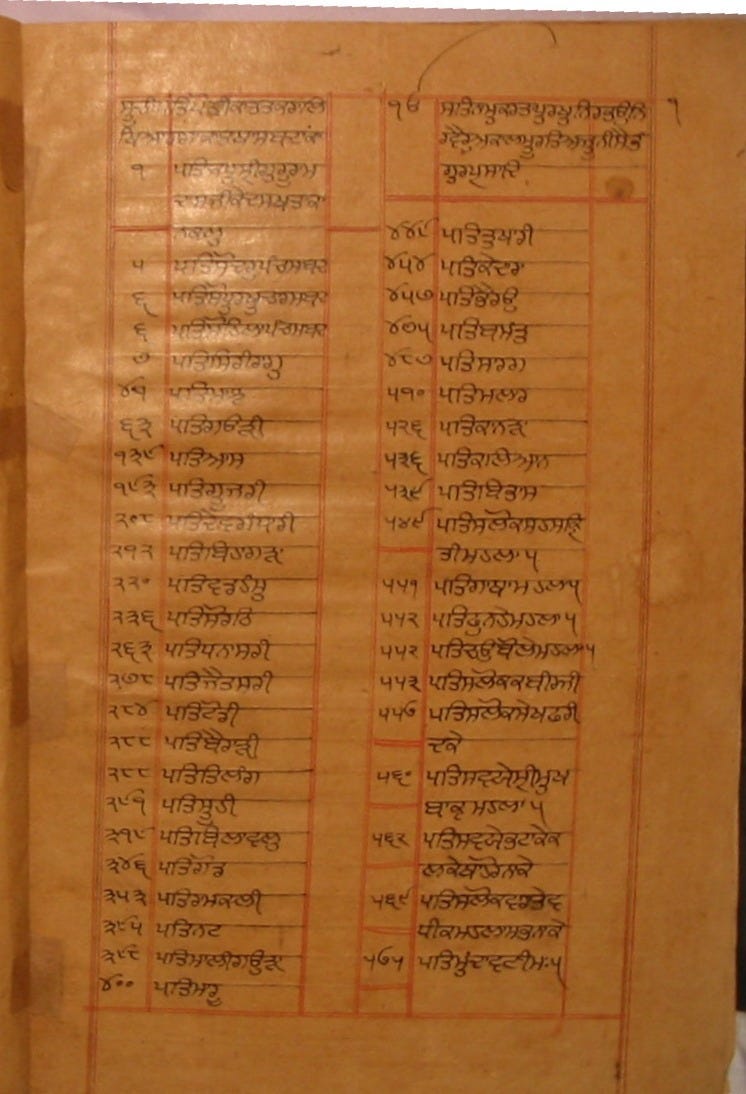 ਸੂਚੀ
੧ ਪਤਿਜਪੁਸ੍ਰੀਗੁਰੂਰਾਮ
ਦਾਸਜੀਕੇਦਸਖਤਕਾ
ਨਕਲੁ
੫ ਪਤਿਸੋਦਰੁਪੰਚਸਬਦ
੬ ਪਤਿਸੋਪੁਰਖੁਚਾਰਸਬਦ
੬ ਪਤਿਸੋਹਿਲਾਪੰਚਸਬਦ
੭ ਪਤਿਸਿਰੀਰਾਗੁ
੪੧ ਪਤਿਮਾਝ
੬੩ ਪਤਿਗਉੜੀ
੧੩੯ ਪਤਿਆਸਾ
੧੯੩ ਪਤਿਗੂਜਰੀ
੨੦੮ ਪਤਿਦੇਵਗੰਧਾਰੀ
੨੧੨ ਪਤਿਬਿਹਾਗੜਾ
੨੨੦ ਪਤਿਵਡਹੰਸੁ
੨੩੬ ਪਤਿਸੋਰਠਿ
੨੬੩ ਪਤਿਧਨਾਸਰੀ
੨੭੮ ਪਤਿਜੈਤਸਰੀ
੨੮੪ ਪਤਿਟੋਡੀ
੨੮੮ ਪਤਿਬੈਰਾੜੀ
੨੮੮ ਪਤਿਤਿਲੰਗ
੨੯੧ ਪਤਿਸੂਹੀ
੩੧੯ ਪਤਿਬਿਲਾਵਲੁ
੩੪੬ ਪਤਿਗੋਂਡ
੩੫੩ ਪਤਿਰਾਮਕਲੀ
੩੯੫ ਪਤਿਨਟ
੩੯੮ ਪਤਿਮਾਲੀਗਉੜਾ
੪੦੦ ਪਤਿਮਾਰੂ
ੴ ਸਤਿਨਾਮੁਕਰਤਾਪੁਰਖੁਨਿਰਭਉਨਿ
ਰਵੈਰੁਅਕਾਲਮੂਰਤਿਅਜੂਨੀਸੈਭੰ
ਗੁਰਪ੍ਰਸਾਦਿ
੧
੪੪੯ ਪਤਿਤੁਖਾਰੀ
੪੫੪ ਪਤਿਕੇਦਾਰਾ
੪੫੭ ਪਤਿਭੈਰਉ
੪੭੫ ਪਤਿਬਸੰਤੁ
੪੮੭ ਪਤਿਸਾਰਗ
੫੧੦ ਪਤਿਮਲਾਰ
੫੨੬ ਪਤਿਕਾਨੜਾ
੫੩੬ ਪਤਿਕਲਿਆਨ
੫੩੯ ਪਤਿਬਿਭਾਸ
੫੪੯ ਪਤਿਸਲੋਕਸਹਸਕ੍ਰਿ
ਤੀਮਹਲਾ ੫
੫੫੧ ਪਤਿਗਾਥਾਮਹਲਾ੫
੫੫੨ ਪਤਿਫੁਨਹੇਮਹਲਾ ੫
੫੫੨ ਪਤਿਚਉਬੋਲੇਮਹਲਾ੫
੫੫੩ ਪਤਿਸਲੋਕਕਬੀਰਜੀ
੫੫੭ ਪਤਿਸਲੋਕਸੇਖਫਰੀ
ਦਕੇ
੫੬੦ ਪਤਿਸਵਯੇਸ੍ਰੀਮੁਖ
ਬਾਕ੍ਯ ਮਹਲਾ ੫
੫੬੨ ਪਤਿਸਵਯੇਭਟਾਂਕੇਕ
੫੬੯ ਪਤਿਸਲੋਕਵਾਰਾਂਤੇਵ
ਧੀਕਮਹਲਾ
੫੭੫ ਪਤਿਮੁੰਦਾਵਣੀਮਃ੫